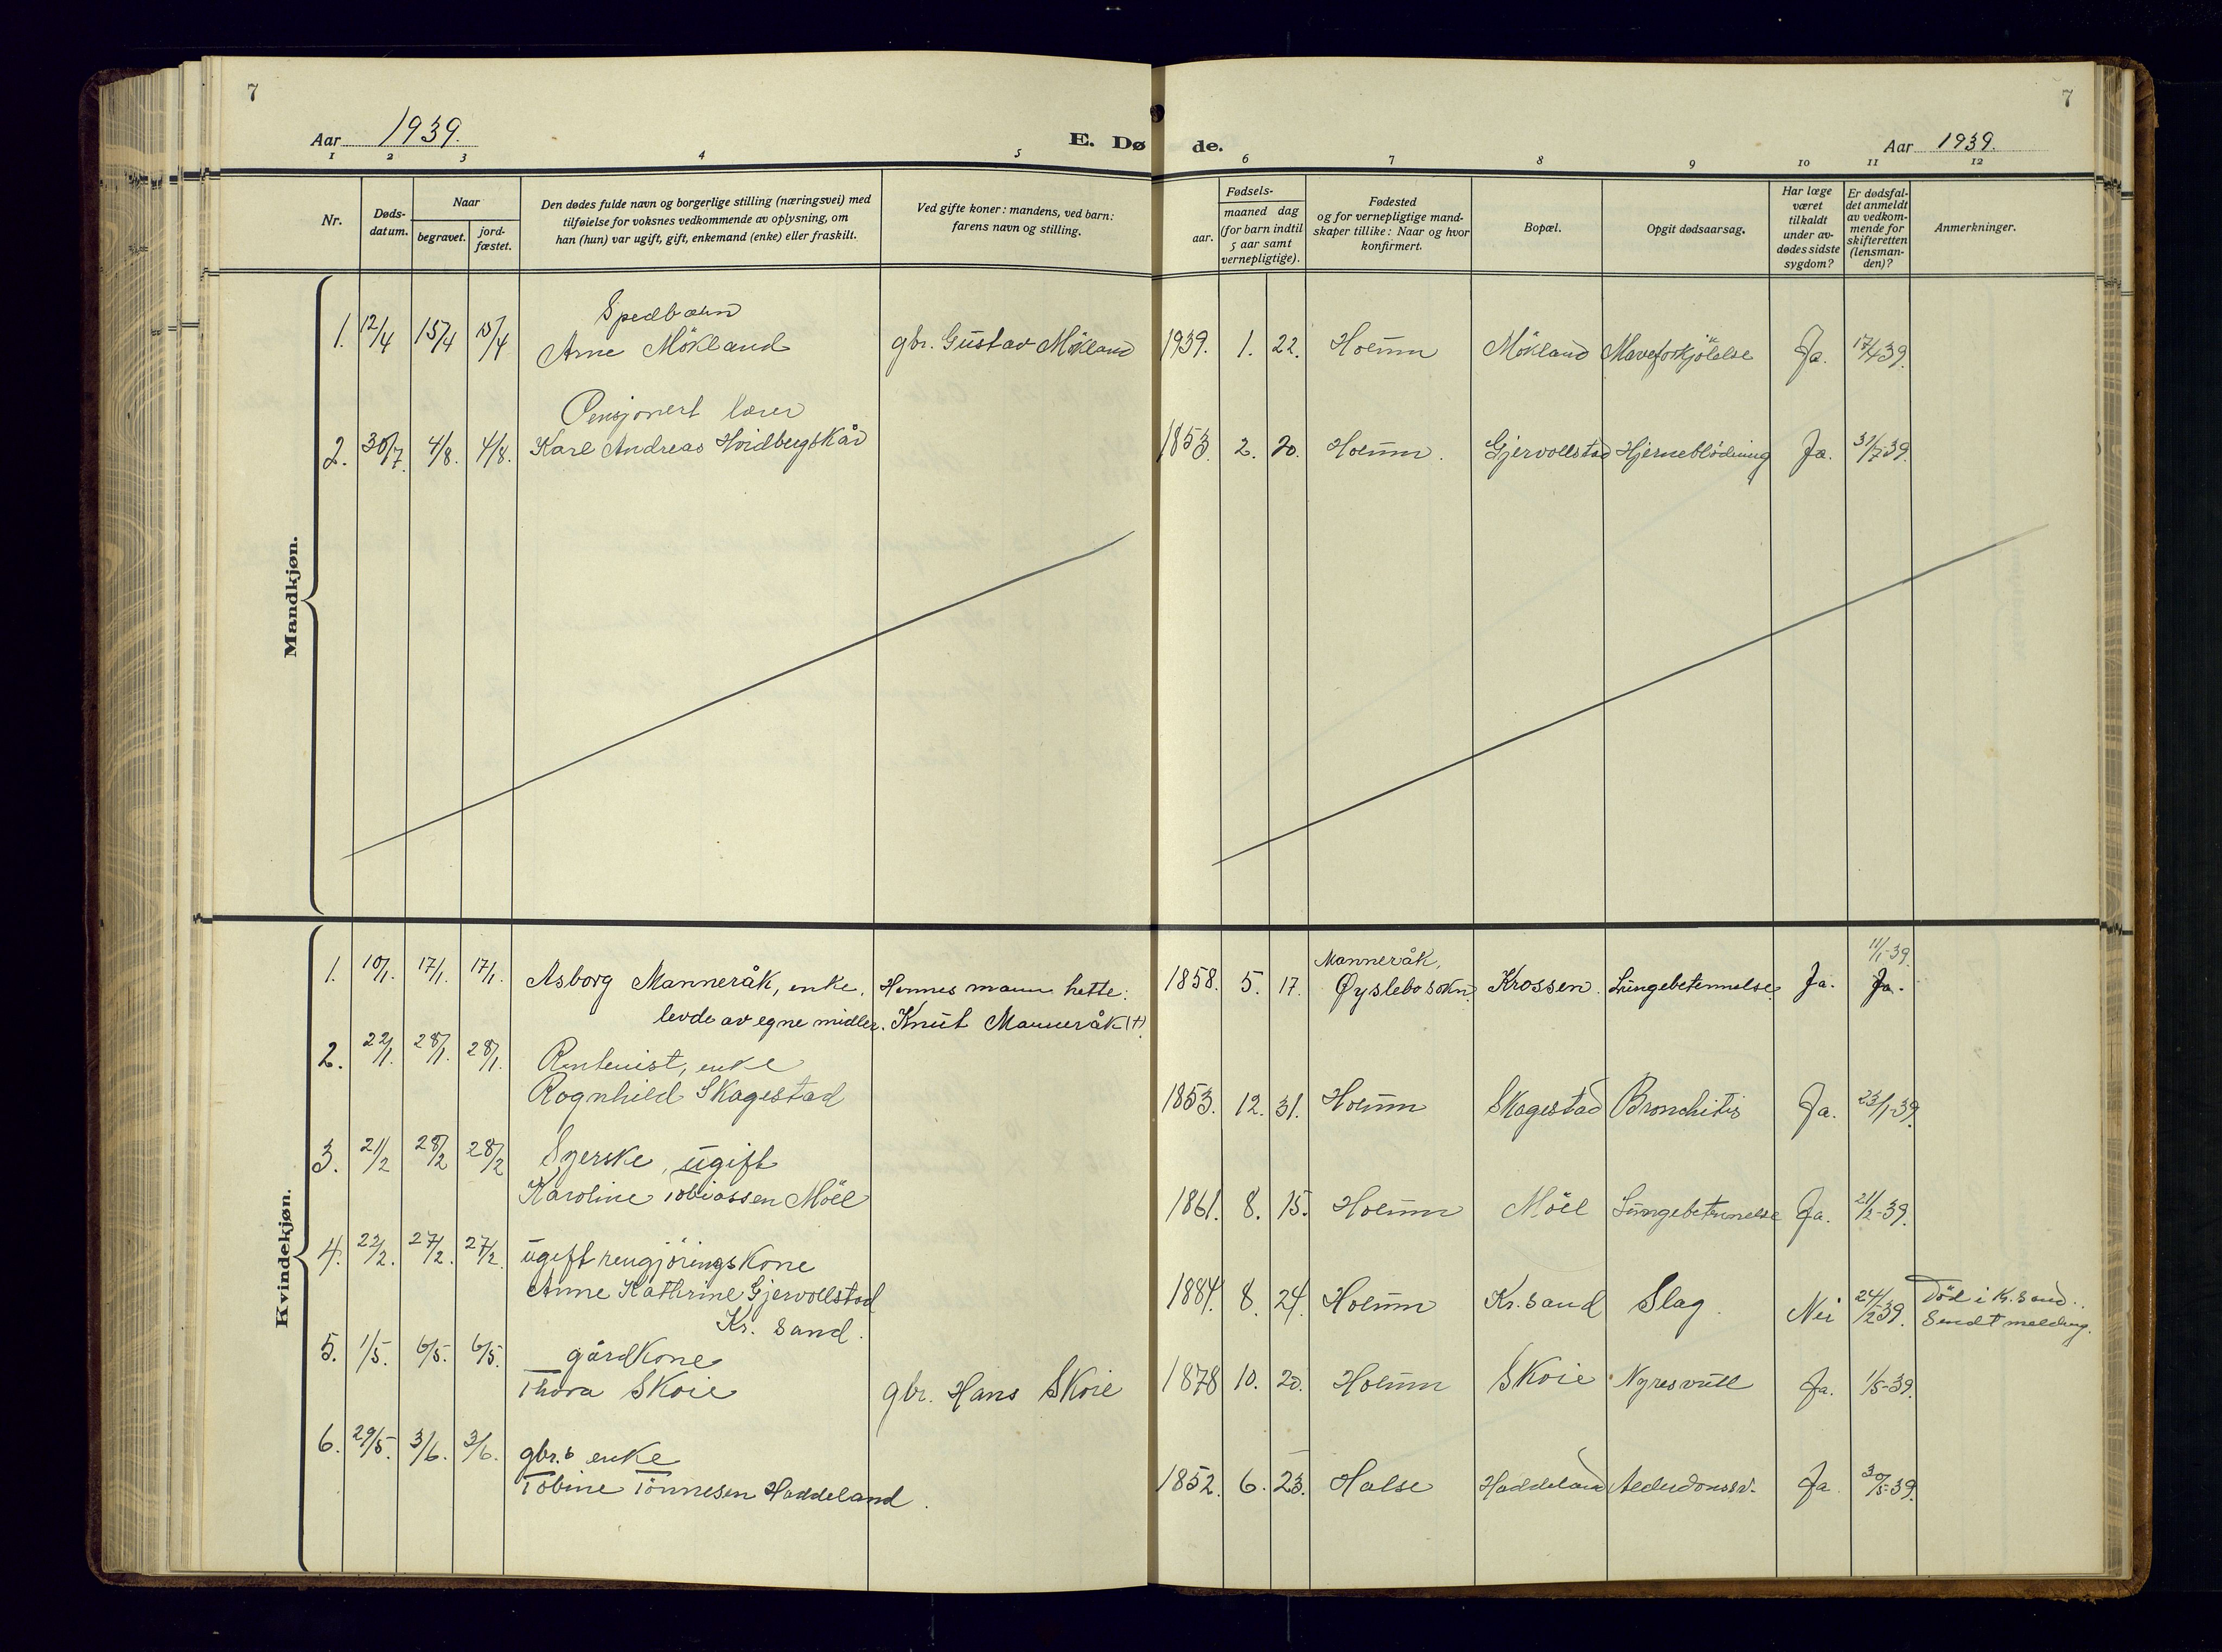 7
7
Aar 1939.
E. Dø de.
Aar 1939.
1 2 3 4 5 6 7 8 9 10 11 12
Nr.
Døds-
datum.
Naar
begravet.
jord-
fæstet.
Den dødes fulde navn og borgerlige stilling (næringsvei) med
tilføielse for voksnes vedkommende av oplysning, om
han (hun) var ugift, gift, enkemand (enke) eller fraskilt.
Ved gifte koner: mandens, ved barn:
farens navn og stilling.
Fødsels-
aar.
maaned dag
(for barn indtil
5 aar samt
vernepligtige).
Fødested
og for vernepligtige mand-
skaper tillike: Naar og hvor
konfirmert.
Bopæl.
Opgit dødsaarsag.
Har læge
været
tilkaldt
under av-
dødes sidste
sygdom?
Er dødsfal-
det anmeldt
av vedkom-
mende for
skifteretten
(lensman-
den)?
Anmerkninger.
Mandkjøn.
Spedbarn
1. 12/4 15/4 15/4 Arne Mökland gbr. Gustav Mökland 1939. 1. 22. Holum Mökland Maveforkjölelse Ja. 17/4 39.
Pensjonert lærer
2. 30/7 4/8. 4/8. Karl Andreas Hvidbergskår 1853. 2. 20. Holum. Gjervollstad Hjerneblödning Ja. 31/7-39.
Kvindekjøn.
Manneråk, 11/1-39.
1. 10/1. 17/1. 17/1. Asborg Manneråk, enke, Hennes mann hette: 1858. 5. 17. Øyslebø sokn. Krossen. Lungebetennelse. Ja. Ja.
levde av egne midler. Knut Manneråk (†)
2. 22/1. 28/1. 28/1. Rentenist, enke
Rognhild Skagestad 1853. 12. 31. Holum Skagestad Bronchitis Ja. 23/1-39.
3. 21/2 28/2 28/2 Syerske, ugift
Karoline Tobiassen Möll 1861. 8. 15. Holum Möll Lungebetennelse Ja. 21/2-39.
4. 22/2. 27/2. 27/2. ugift rengjöringskone
Anne Kathrine Gjervollstad 1884. 8. 24. Holum Kr. sand Slag. Nei 24/2 39. Död i Kr. sand..
Kr. sand. Sendt melding.
5. 1/5. 6/5. 6/5. gårdkone
Thora Skoie gbr. Hans Skoie 1878 10. 20. Holum Skoie Nyresvull Ja. 1/5-39.
6. 29/5. 3/6. 3/6. gbr.s enke
Tobine Tönnesen Haddeland. 1852. 6. 23. Halse Haddeland Ja 30/5-39.